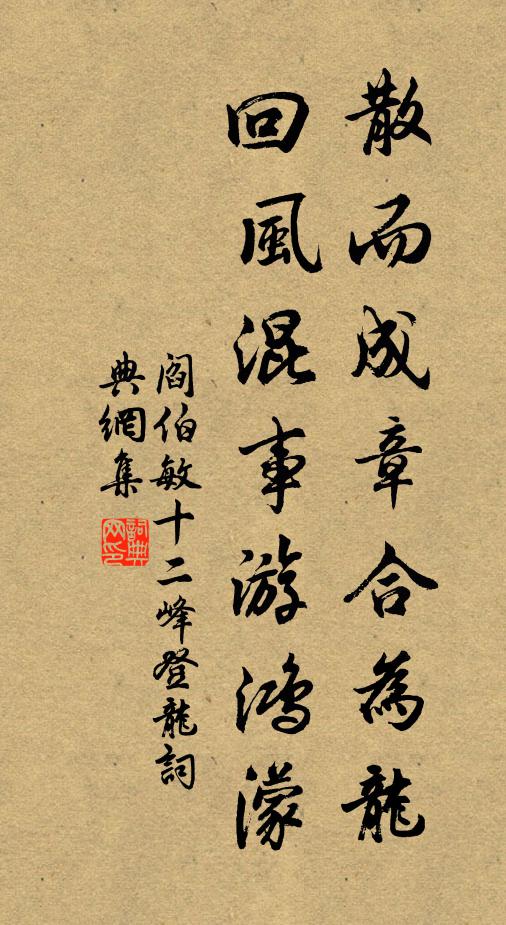 散而成章合為龍
回風混事游鴻濛
閻伯敏十二峰登龍詞
典網集
詞典網印